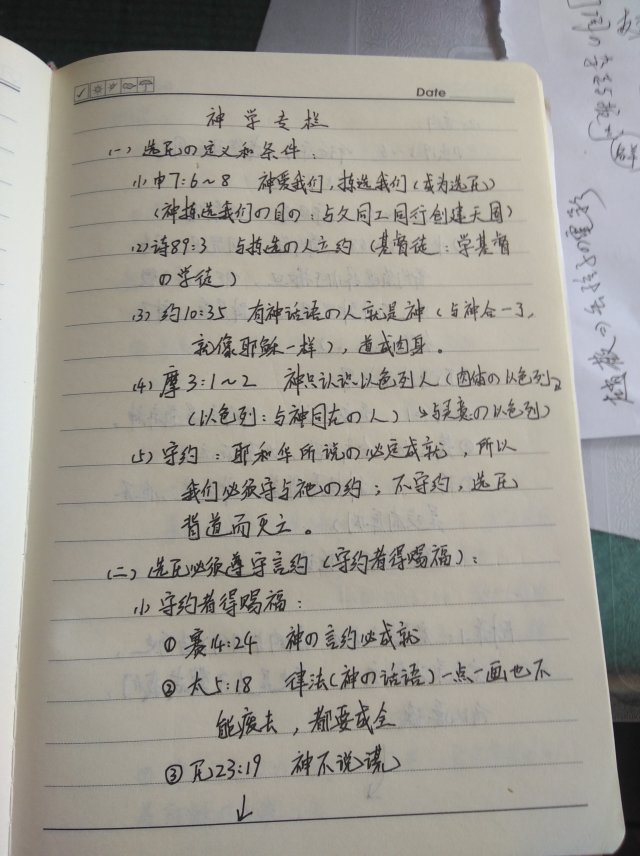 Date
神学专栏
(一) 选民の定义和条件：
(1) 申7:6~8 神爱我们，拣选我们（成为选民）
（神拣选我们の目の：与父同工同行创建天国）
(2) 诗89:3 与拣选の人立约（基督徒：学基督
の学徒）
(3) 约10:35 有神话语の人就是神（与神合一了，
就像耶稣一样），道成肉身。
(4) 摩3:1~2 神只认识以色列人（肉体の以色列
（以色列：与神同在の人） 与真意の以色列）
(5) 守约：耶和华所说の必定成就，所以
我们必须守与祂の约；不守约，选民
背道而灭亡。
(二) 选民必须遵守言约（守约者得赐福）：
(1) 守约者得赐福：
① 赛14:24 神の言约必成就
② 太5:18 律法(神の话语)一点一画也不
能废去，都要成全
③ 民23:19 神不说谎
↓